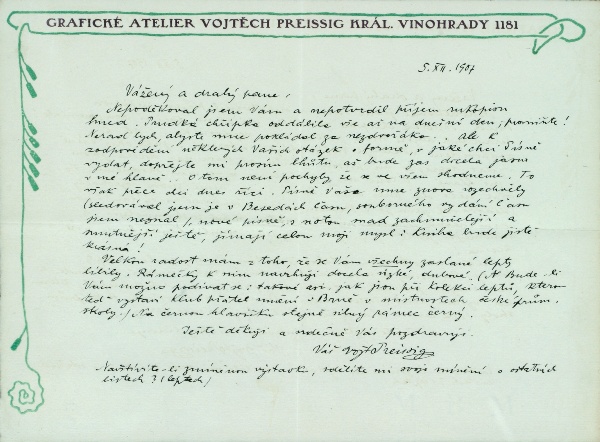 GRAFICKÉ ATELIER VOJTĚCH PREISSIG KRÁL. VINOHRADY 1181
5. XII. 1907
Vážený a drahý pane,
Nepoděkoval jsem Vám a nepotvrdil příjem rukopisu
hned. Prudká chřipka oddálila vše až na dnešní den; promiňte!
Nerad bych, abyste mne pokládal za nezdvořáka. Ale k
zodpovědění některých Vašich otázek o formě, v jaké chci Písně
vydat, dopřejte mi prosím lhůtu, až bude zas docela jasno
v mé hlavě. O tom není pochyby že se ve všem shodneme. To
však přece dci dnes říci. Písně Vaše mne znova rozechvěly
(sledoval jsem je v Besedách Času, souborného vydání Času
jsem neznal), nové písně, s notou snad zachmuřelejší a
smutnější ještě, jímají celou moji mysl: Kniha bude jistě
krásná!
Velkou radost mám z toho, že se Vám všechny zaslané lepty
líbily. Rámečky k nim navrhuji docela úzké, dubové. (A bude-li
Vám možno podívat se: takové asi, jak jsou při kolekci leptů, kterou
teď vystaví Klub přátel umění v Brně v místnostech české prům.
školy.) Na černou hlavičku stejně silný rámec černý.
Ještě děkuji a srdečně Vás pozdravuji.
Váš Vojt Preissig
Navštívíte-li zmíněnou výstavku, sdělíte mi svoje mínění o ostatních
listech? (leptech)